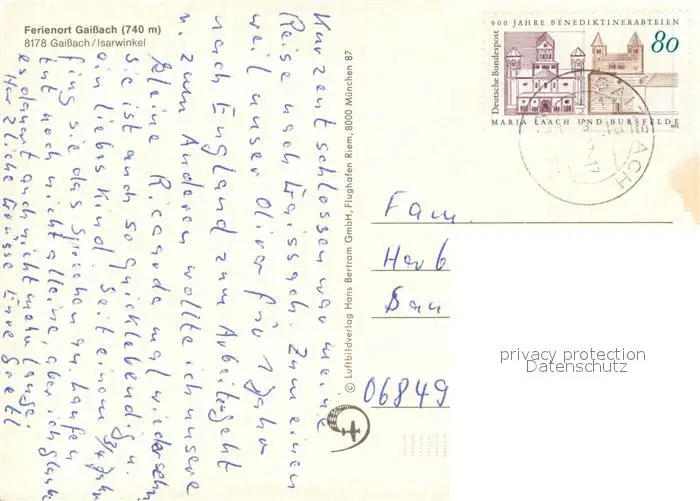 Ferienort Gaißach (740 m)
8178 Gaißach/Isarwinkel
Kurz entschlossen war meine
Reise nach Gaissach. Zum einen
weil unser Oliver für 1 Jahr
nach England zum Arbeiten geht
u. zum Anderen wollte ich unsere
kleine Ricarda mal wiedersehn
sie ist auch so quicklebendig u.
ein liebes Kind. Seit einem 3/4 Jahr
fing sie das Sprechen an, laufen
tut noch nicht alleine, aber ich glaub
es dauert auch nicht mehr lange.
Herzliche Grüsse Eure Gretl
© Luftbildverlag Hans Bertram GmbH, Flughafen Riem, 8000 München 87
900 JAHRE BENEDIKTINERABTEIEN
80
Deutsche Bundespost
MARIA LAACH UND BURSFELDE
GAISSACH
Fam.
Herb
Bau
06849
privacy protection
Datenschutz